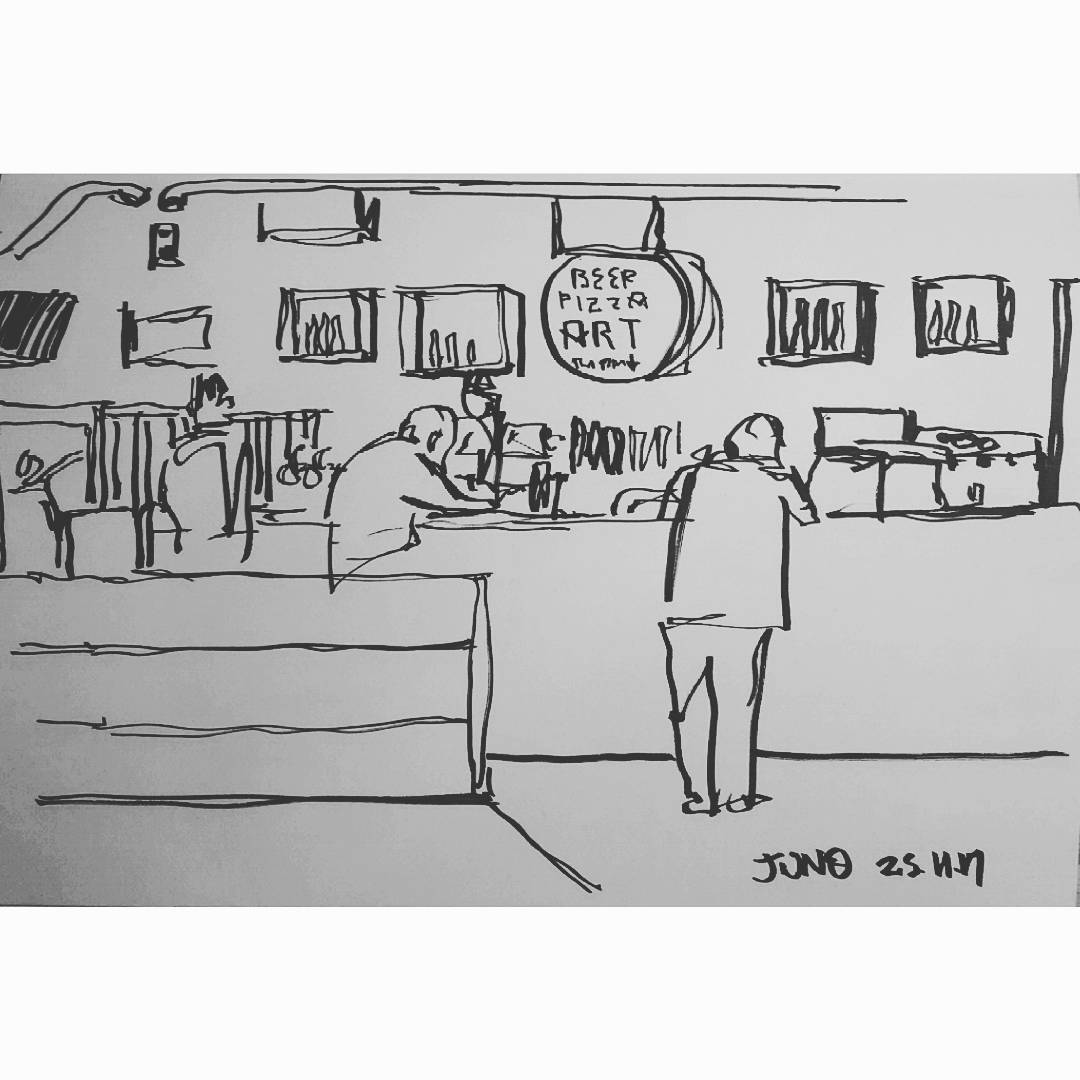 BEER
PIZZA
ART
JUNO 25.11.17